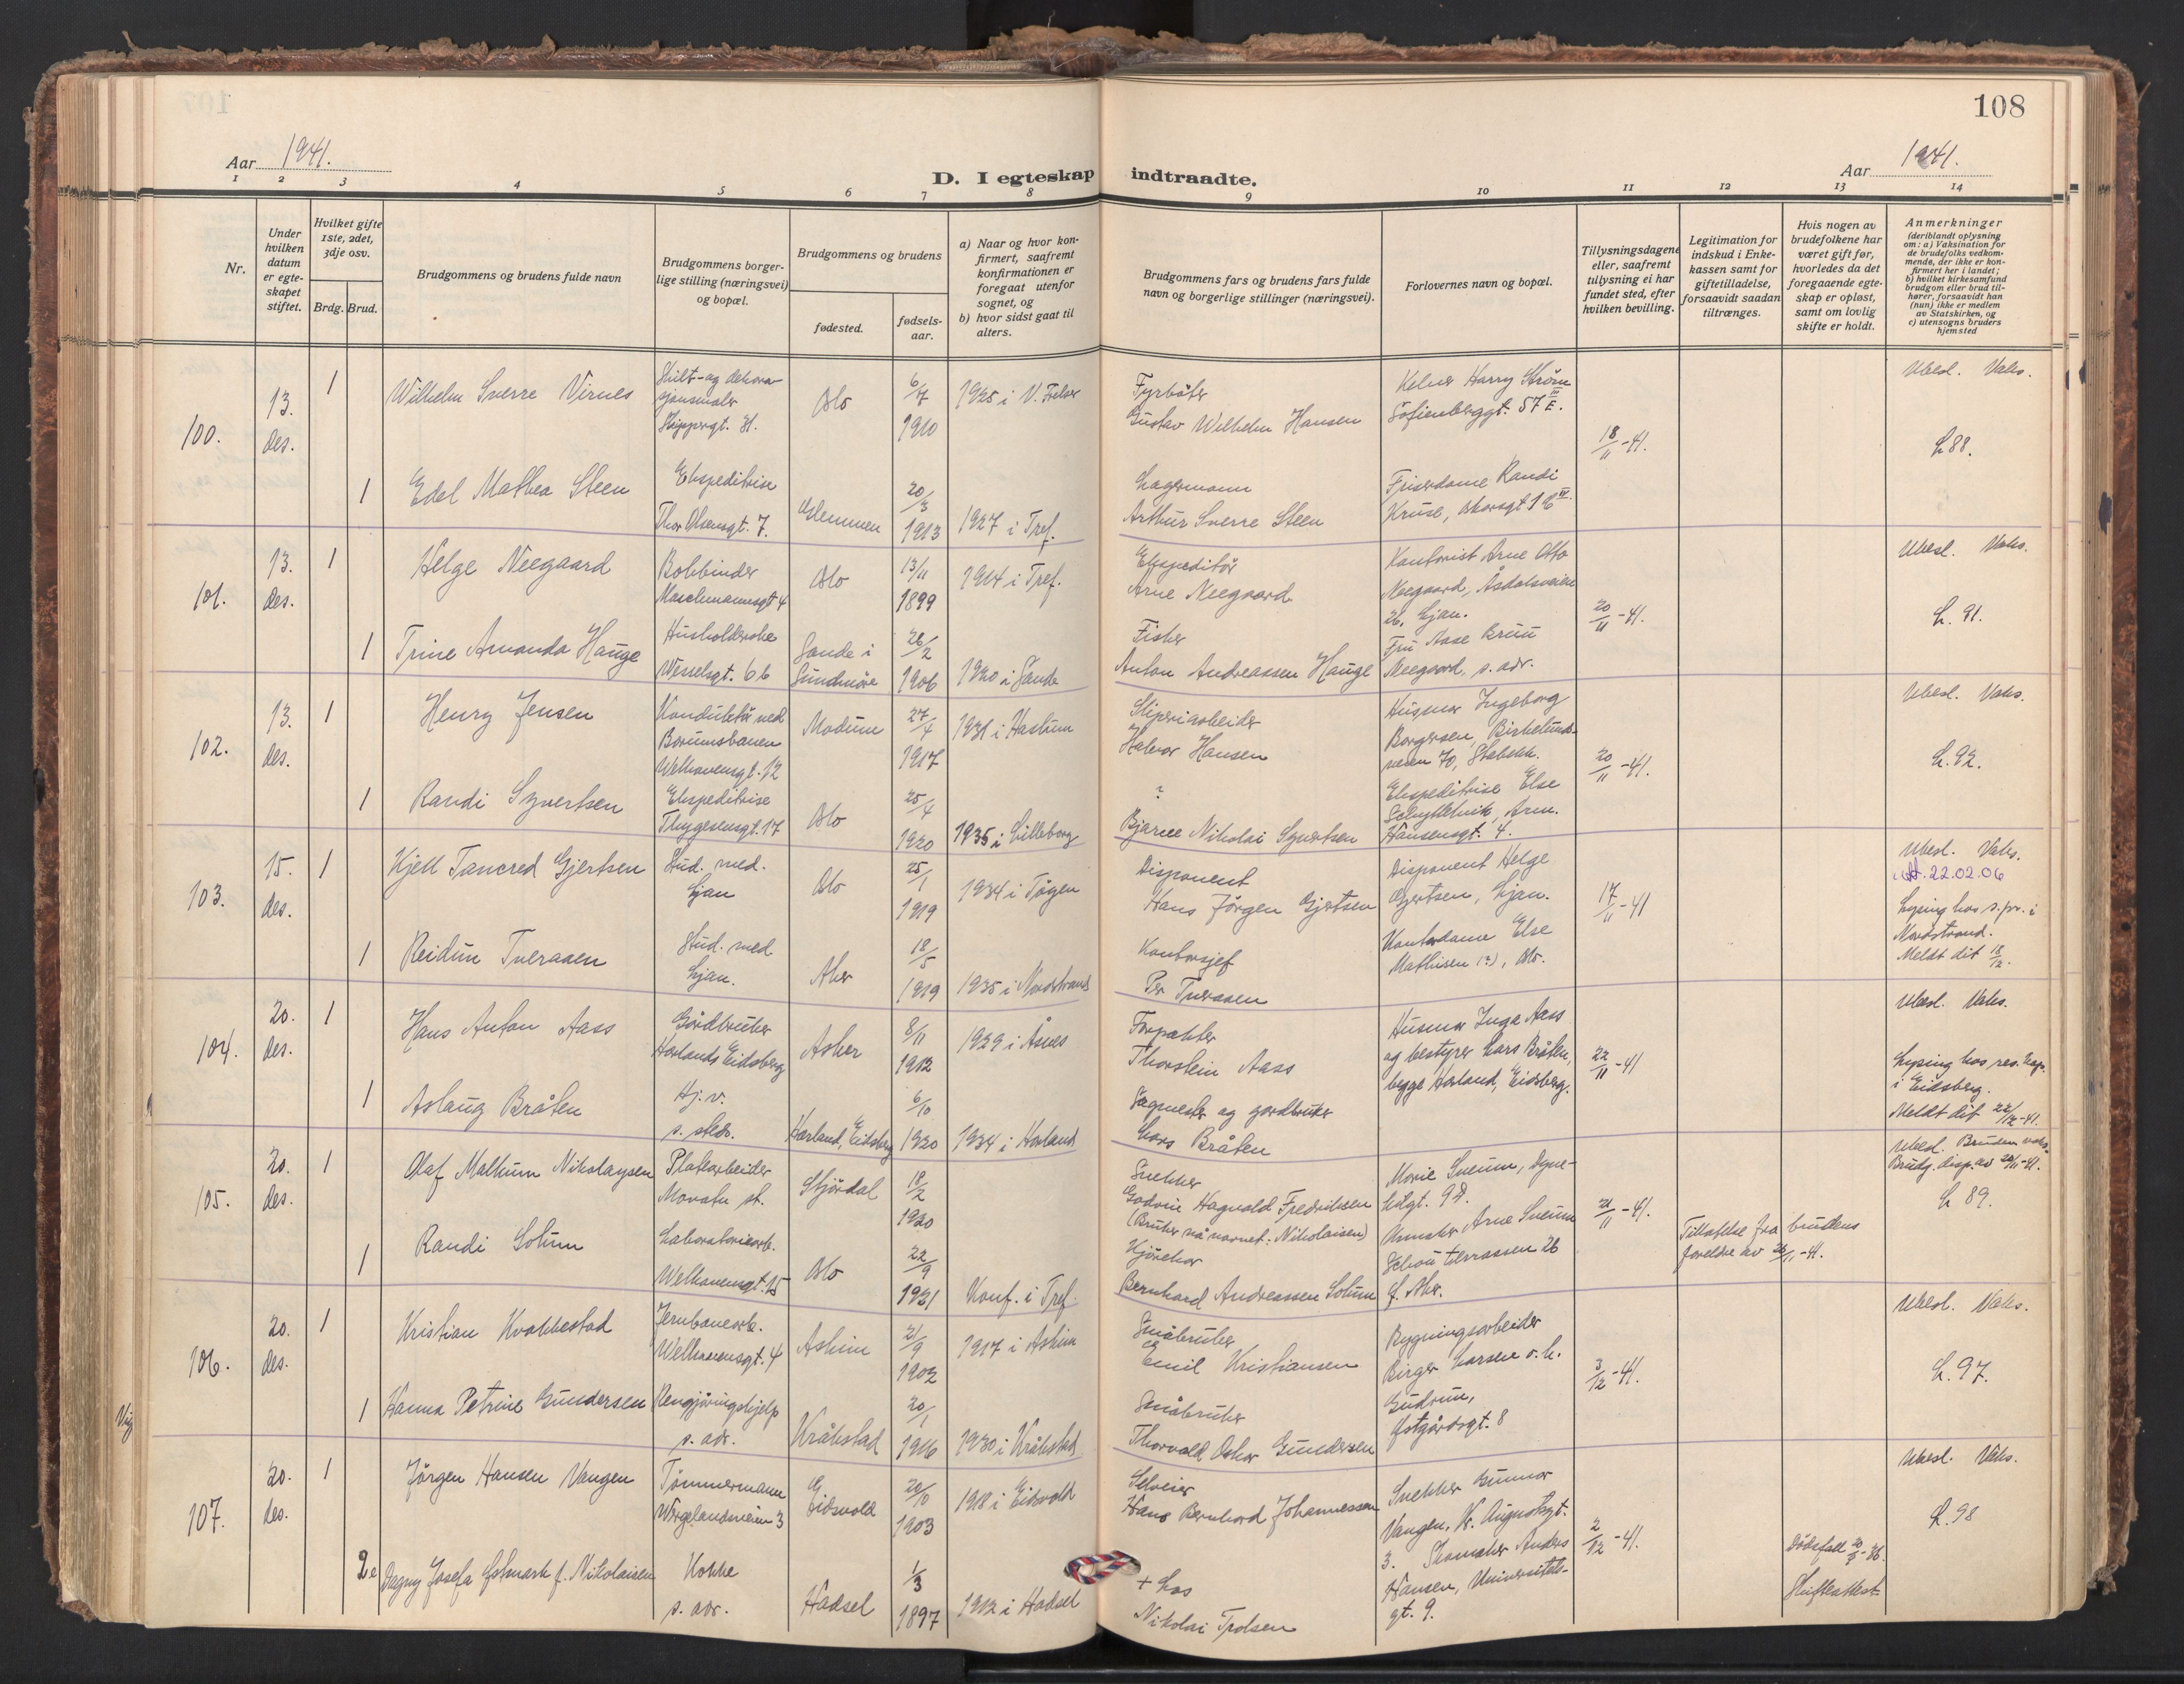 108
Aar 1941.
Aar 1941.
D. I egteskap indtraadte.
1 2 3 4 5 6 7 8 9 10 11 12 13 14
Nr.
Under hvilken datum er egte-skapet stiftet.
Hvilket gifte 1ste, 2det, 3dje osv.
Brdg. Brud.
Brudgommens og brudens fulde navn
Brudgommens borger-lige stilling (næringsvei) og bopæl.
Brudgommens og brudens
fødested.
fødsels-aar.
a) Naar og hvor kon-firmert, saafremt konfirmationen er foregaat utenfor sognet, og
b) hvor sidst gaat til alters.
Brudgommens fars og brudens fars fulde navn og borgerlige stillinger (næringsvei).
Forlovernes navn og bopæl.
Tillysningsdagene eller, saafremt tillysning ei har fundet sted, efter hvilken bevilling.
Legitimation for indskud i Enke-kassen samt for giftetilladelse, forsaavidt saadan tiltrænges.
Hvis nogen av brudefolkene har været gift før, hvorledes da det foregaaende egte-skap er opløst, samt om lovlig skifte er holdt.
Anmerkninger
(deriblandt oplysning om: a) Vaksination for de brudefolks vedkom-mende, der ikke er kon-firmert her i landet; b) hvilket kirkesamfund brudgom eller brud til-hører, forsaavidt han (hun) ikke er medlem av Statskirken, og c) utensogns bruders hjemsted
100. 13. des. 1 Wilhelm Sverre Virnes
Skilt- og dekora-sjonsmaler
Skippergt. 31.
Oslo 6/7 1910 1925 i V. Frelser
Fyrbøter
Gustav Wilhelm Hansen
Kelner Harry Strøm
Sofienberggt. 57 E. III
18/11-41.
Ubesl. Vaks.
L 88.
1 Edel Mathea Steen
Ekspeditrise
Thor Olsensgt. 7.
Glemmen 20/3 1913 1927 i Tref.
Lagermann
Arthur Sverre Steen
Friserdame Randi
Kruse,
101. 13. des. 1 Helge Neegaard
Bokbinder
Maschmannsgt 4
Oslo 13/11 1899 1914 i Tref.
Ekspeditør
Arne Neegaard
Kontorist Arne Otto
Neegaard, Åsdalsveien
26, Ljan.
20/11-41.
Ubesl. Vaks.
L. 91.
1 Trine Amanda Hauge
Husholderske
Wesselsgt. 6 b
Sande i Sunnmøre 26/2 1906 1920 i Sande
Fisker
Anton Andreassen Hauge
Fru Aase Bruu
Neegaard, s. adr.
102. 13. des. 1 Henry Jensen
Konduktør ved
Bærumsbanen
Welhavensgt. 12
Modum 27/4 1917 1931 i Haslum
Sliperiarbeider
Halvor Hansen
Husmor Ingeborg
Borgersen, Birkelunds-
veien 70, Stabekk.
20/11-41.
Ubesl. Vaks.
L. 92.
1 Randi Syvertsen
Ekspeditrise
Thygesensgt. 17
Oslo 25/4 1920 1935 i Lilleborg
?
Bjarne Nikolai Syvertsen
Ekspeditrise Else
Arm.
Hansensgt. 4.
103. 15. des. 1 Kjell Tancred Gjertsen
Stud. med.
Ljan
Oslo 25/1 1919 1934 i Tøyen
Disponent
Hans Jørgen Gjertsen
Disponent Helge
Gjertsen, Ljan.
17/11-41
Ubesl. Vaks.
22.02.06
Lysing hos s.pr. i
Nordstrand.
Meldt dit 18/12.
1 Reidun Tveraaen
Stud. med
Ljan.
Aker 18/5 1919 1935 i Nordstrand
Kontorsjef
Per Tveraaen
Kontordame Else
Mathisen (?), Oslo.
104. 20. des. 1 Hans Anton Aass
Gårdbruker
Hærlands Eidsberg
Asker 8/11 1912 1929 i Åsnes
Forpakter
Thorstein Aass
Husmor Inga Aass
og bestyrer Lars Bråten,
begge Hærland, Eidsberg.
22/11-41
Ubesl. Vaks.
Lysing hos res. kap.
i Eidsberg.
Meldt dit 22/12-41.
1 Aslaug Bråten
Hj. v.
s. steds.
Hærland, Eidsberg 6/10 1920 1934 i Hærland
Sagmester og gardbruker
Lars Bråten
105. 20. des. 1 Olaf Malhum Nikolaysen
Platearbeider
Movatn st.
Stjørdal 18/2 1920
Snekker
Godvin Hagvald Fredriksen
(Bruker nå navnet: Nikolaisen)
Marie Sneum,
21/11-41.
Tillatelse fra brudens
foreldre av 26/11-41.
Ubesl. Bruden vaks.
Brudg. disp. av 20/11-41.
L 89.
1 Randi Solum
Laboratoriearb.
Welhavensgt. 15
Oslo 22/9 1921 Konf. i Tref.
Kjørekar
Bernhard Andreassen Solum
Arne Sneum
Schou terrassen 26
106. 20. des. 1 Kristian Kvakkestad
Jernbanearb.
Welhavensgt. 4
Askim 21/9 1902 1917 i Askim
Småbruker
Emil Kristiansen
Bygningsarbeider
Birger Larsen o. h.
Gudrun,
Østgårdsgt. 8
3/12-41.
Ubesl. Vaks.
L. 97.
1 Hanna Petrine Gundersen
Rengjøringshjelp
s. adr.
Kråkstad 20/1 1916 1930 i Kråkstad
Småbruker
Thorvald Oskar Gundersen
Vig
107. 20. des. 1 Jørgen Hansen Vangen
Tømmermann
Wergelandsveien 3
Eidsvold 20/10 1903 1918 i Eidsvold
Selveier
Hans Bernhard Johannessen
Snekker Gunnar
Vangen, Kr. Augustsgt.
3.
2/12-41.
Ubesl. Vaks.
L. 98
2 Dagny Josefa Estmark f. Nikolaisen
Kokke
s. adr.
Hadsel 1/3 1897 1912 i Hadsel
+ Los
Nikolai Trolsen
Skomaker Anders
Hansen, Universitets-
gt. 9.
Dødsfall
Skifteattest